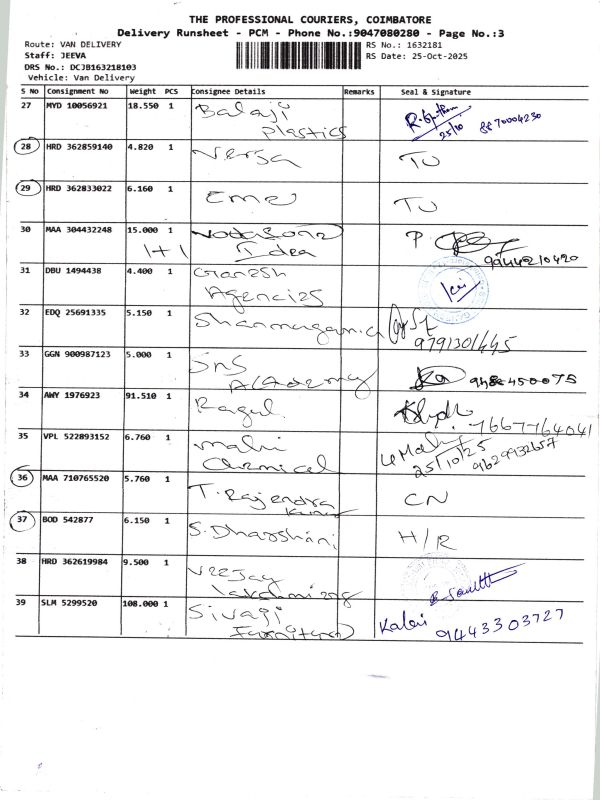 THE PROFESSIONAL COURIERS, COIMBATORE
Delivery Runsheet - PCM - Phone No.:9047080280 - Page No.:3
Route: VAN DELIVERY RS No.: 1632181
Staff: JEEVA RS Date: 25-Oct-2025
DRS No.: DCJB163218103
Vehicle: Van Delivery
S No Consignment No Weight PCS Consignee Details Remarks Seal & Signature
27 MYD 10056921 18.550 1 Balaji
Plastics 25/10 8870004230
28 HRD 362859140 4.820 1 Versa TU
29 HRD 362833022 6.160 1 Eme TU
30 MAA 304432248 15.000 1 Vodafone P.
1+1 Idea 9944210420
31 DBU 1494438 4.400 1 Ganesh
Agencies
32 EDQ 25691335 5.150 1 Shanmuganica
9791301445
33 GGN 900987123 5.000 1 SNS
Academy 9486450075
34 AWY 1976923 91.510 1 Ragul 7667764041
35 VPL 522893152 6.760 1 Mahi
Chemical 25/10/25 9629932657
36 MAA 710765520 5.760 1 T. Rajendra CN
Kumar
37 BOD 542877 6.150 1 S. Dharshini H/R
38 HRD 362619984 9.500 1 Veejay
Lakshmi
39 SLM 5299520 108.000 1 Sivaji Kalai
Furniture 9443303727